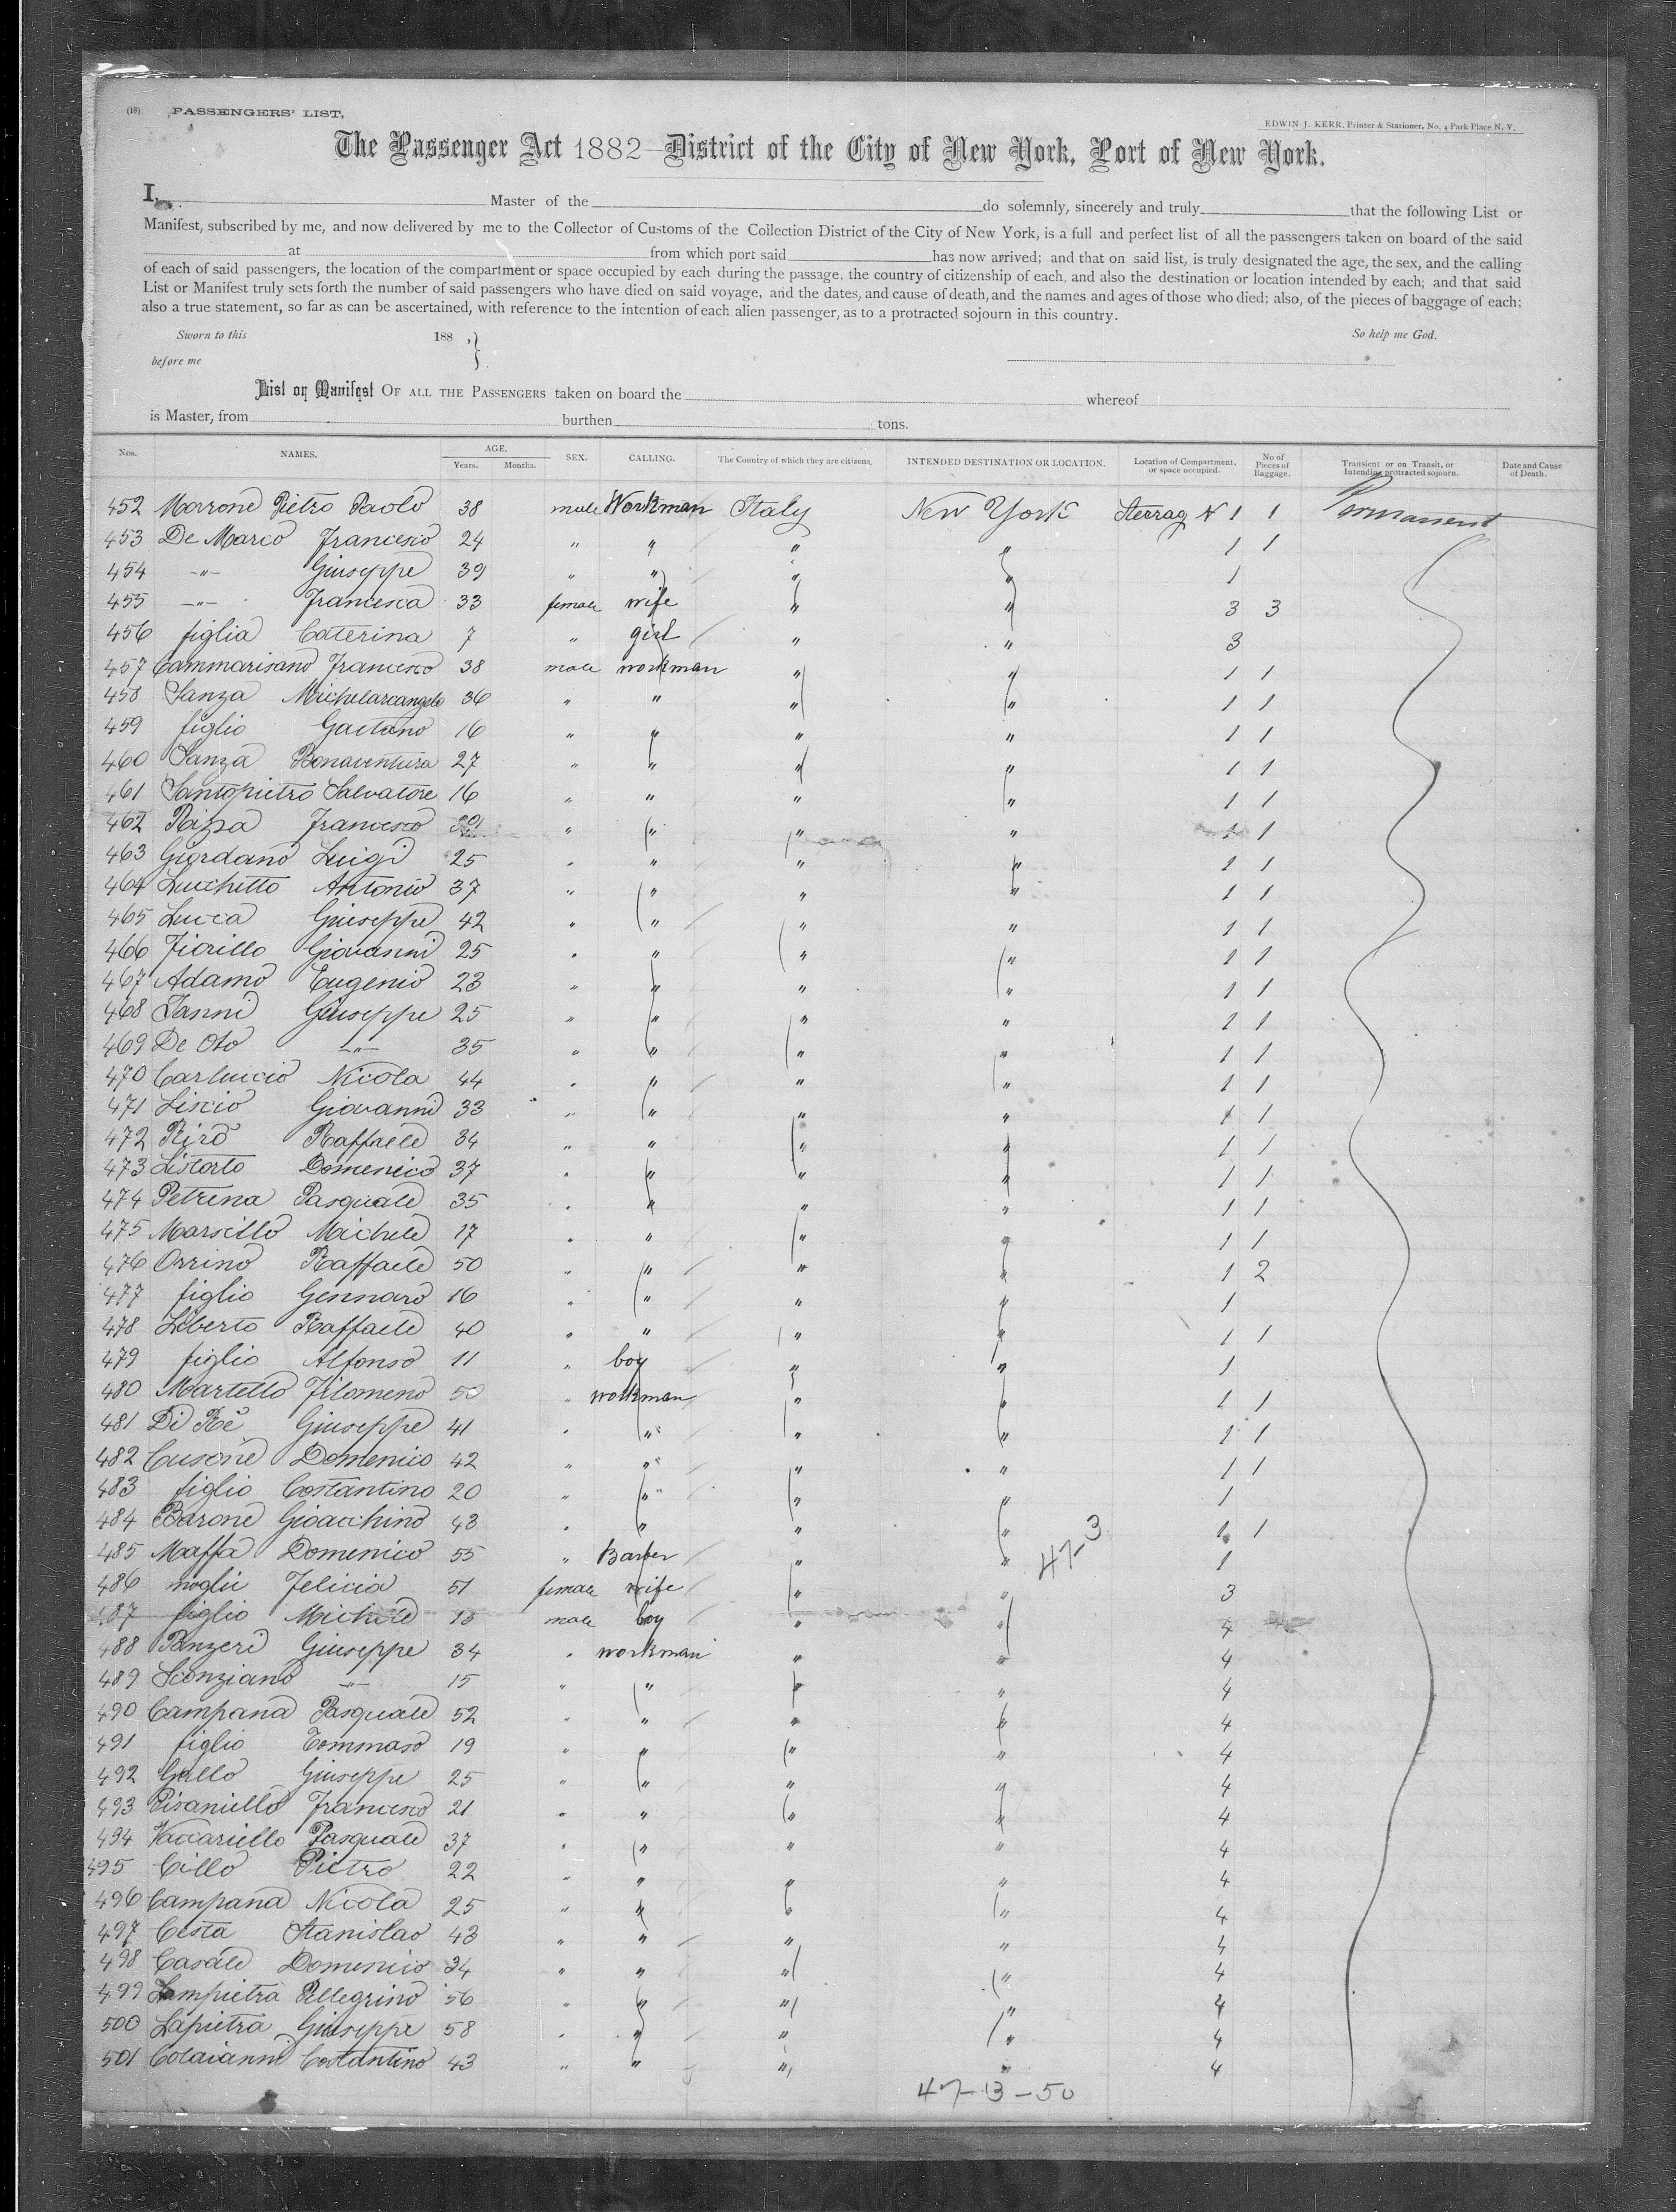 (18) PASSENGERS' LIST.
EDWIN J. KERR, Printer & Stationer, No. 4 Park Place N. Y.
The Passenger Act 1882—District of the City of New York, Port of New York.
I, Master of the do solemnly, sincerely and truly that the following List or
Manifest, subscribed by me, and now delivered by me to the Collector of Customs of the Collection District of the City of New York, is a full and perfect list of all the passengers taken on board of the said
at from which port said has now arrived; and that on said list, is truly designated the age, the sex, and the calling
of each of said passengers, the location of the compartment or space occupied by each during the passage, the country of citizenship of each, and also the destination or location intended by each; and that said
List or Manifest truly sets forth the number of said passengers who have died on said voyage, and the dates, and cause of death, and the names and ages of those who died; also, of the pieces of baggage of each;
also a true statement, so far as can be ascertained, with reference to the intention of each alien passenger, as to a protracted sojourn in this country.
Sworn to this 188 , } So help me God.
before me
List or Manifest OF ALL THE PASSENGERS taken on board the whereof
is Master, from burthen tons.
Nos. NAMES. AGE. Years. Months. SEX. CALLING. The Country of which they are citizens. INTENDED DESTINATION OR LOCATION. Location of Compartment, or space occupied. No of Pieces of Baggage. Transient or on Transit, or Intending protracted sojourn. Date and Cause of Death.
452 Marrone Pietro Paolo 38 male Workman Italy New York Sterrag N 1 1 Permanent
453 De Marco Francesco 24 " " " " 1 1
454 -"- Giuseppe 39 " " " " 1
455 -"- Francesca 33 female wife " " 3 3
456 figlia Caterina 7 " girl " " 3
457 Cammarisano Francesco 38 male workman " " 1 1
458 Sanza Michelarcangelo 36 " " " " 1 1
459 figlio Gaetano 16 " " " " 1 1
460 Sanza Bonaventura 27 " " " " 1 1
461 Santopietro Salvatore 16 " " " " 1 1
462 Rizza Francesco " " " " 1 1
463 Giordano Luigi 25 " " " " 1 1
464 Lucchetto Antonio 37 " " " " 1 1
465 Lucca Giuseppe 42 " " " " 1 1
466 Fiorillo Giovanni 25 " " " " 1 1
467 Adamo Eugenio 23 " " " " 1 1
468 Ianni Giuseppe 25 " " " " 1 1
469 De Oto -"- 35 " " " " 1 1
470 Carluccio Nicola 44 " " " " 1 1
471 Liscio Giovanni 33 " " " " 1 1
472 Rirò Raffaele 34 " " " " 1 1
473 Listorto Domenico 37 " " " " 1 1
474 Petrena Pasquale 35 " " " " 1 1
475 Marsillo Michele 17 " " " " 1 1
476 Orrino Raffaele 50 " " " " 1 2
477 figlio Gennaro 16 " " " " 1
478 Liberto Raffaele 40 " " " " 1 1
479 figlio Alfonso 11 " boy " " 1
480 Martello Filomeno 50 " workman " " 1 1
481 Di Rè Giuseppe 41 " " " " 1 1
482 Cusone Domenico 42 " " " " 1 1
483 figlio Costantino 20 " " " " 1
484 Barone Gioacchino 43 " " " " 1 1
485 Maffa Domenico 55 " Barber " " 47-3 1
486 moglie Felicia 51 female wife " " 3
487 figlio Michele 15 male boy " " 4
488 Panzeri Giuseppe 34 " workman " " 4
489 Sconziano -"- 15 " " " " 4
490 Campana Pasquale 52 " " " " 4
491 figlio Tommaso 19 " " " " 4
492 Gallo Giuseppe 25 " " " " 4
493 Pisaniello Francesco 21 " " " " 4
494 Vaccariello Pasquale 37 " " " " 4
495 Cillo Pietro 22 " " " " 4
496 Campana Nicola 25 " " " " 4
497 Cesta Stanislao 43 " " " " 4
498 Casale Domenico 34 " " " " 4
499 Pellegrino 56 " " " " 4
500 Lapietra Giuseppe 58 " " " " 4
501 Colaianni Costantino 43 " " " " 4
47-13-50